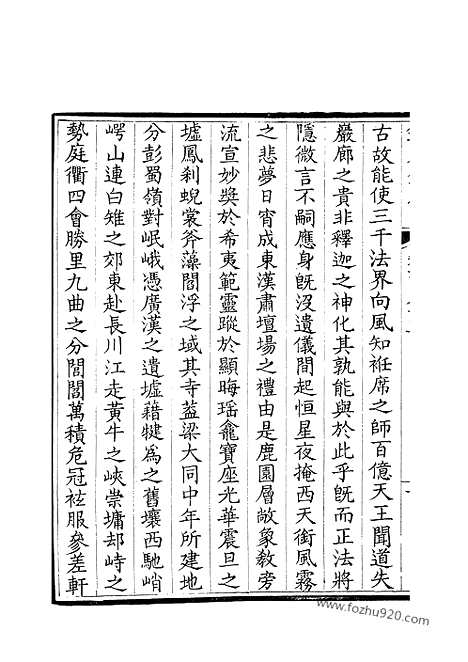 古故能使三千法界向風知袵席之師百億天王聞道失
巖廊之貴非釋迦之神化其孰能與於此乎旣而正法將
隱微言不嗣應身旣沒遺儀間起恒星夜掩西天銜風霧
之悲夢日宵成東漢肅壇場之禮由是鹿園層敞象敎旁
流宣妙獎於希夷範靈蹤於顯晦瑶龕寶座光華震旦之
墟鳳刹蜺裳斧藻閻浮之域其寺葢梁大同中年所建地
分彭蜀嶺對岷峨憑廣漢之遺墟藉犍爲之舊壤西馳峭
崿山連白雉之郊東赴長川江走黃牛之峽崇墉却峙之
勢庭衢四會勝里九曲之分閭閻萬積危冠袨服參差軒
www.fozhu920.com